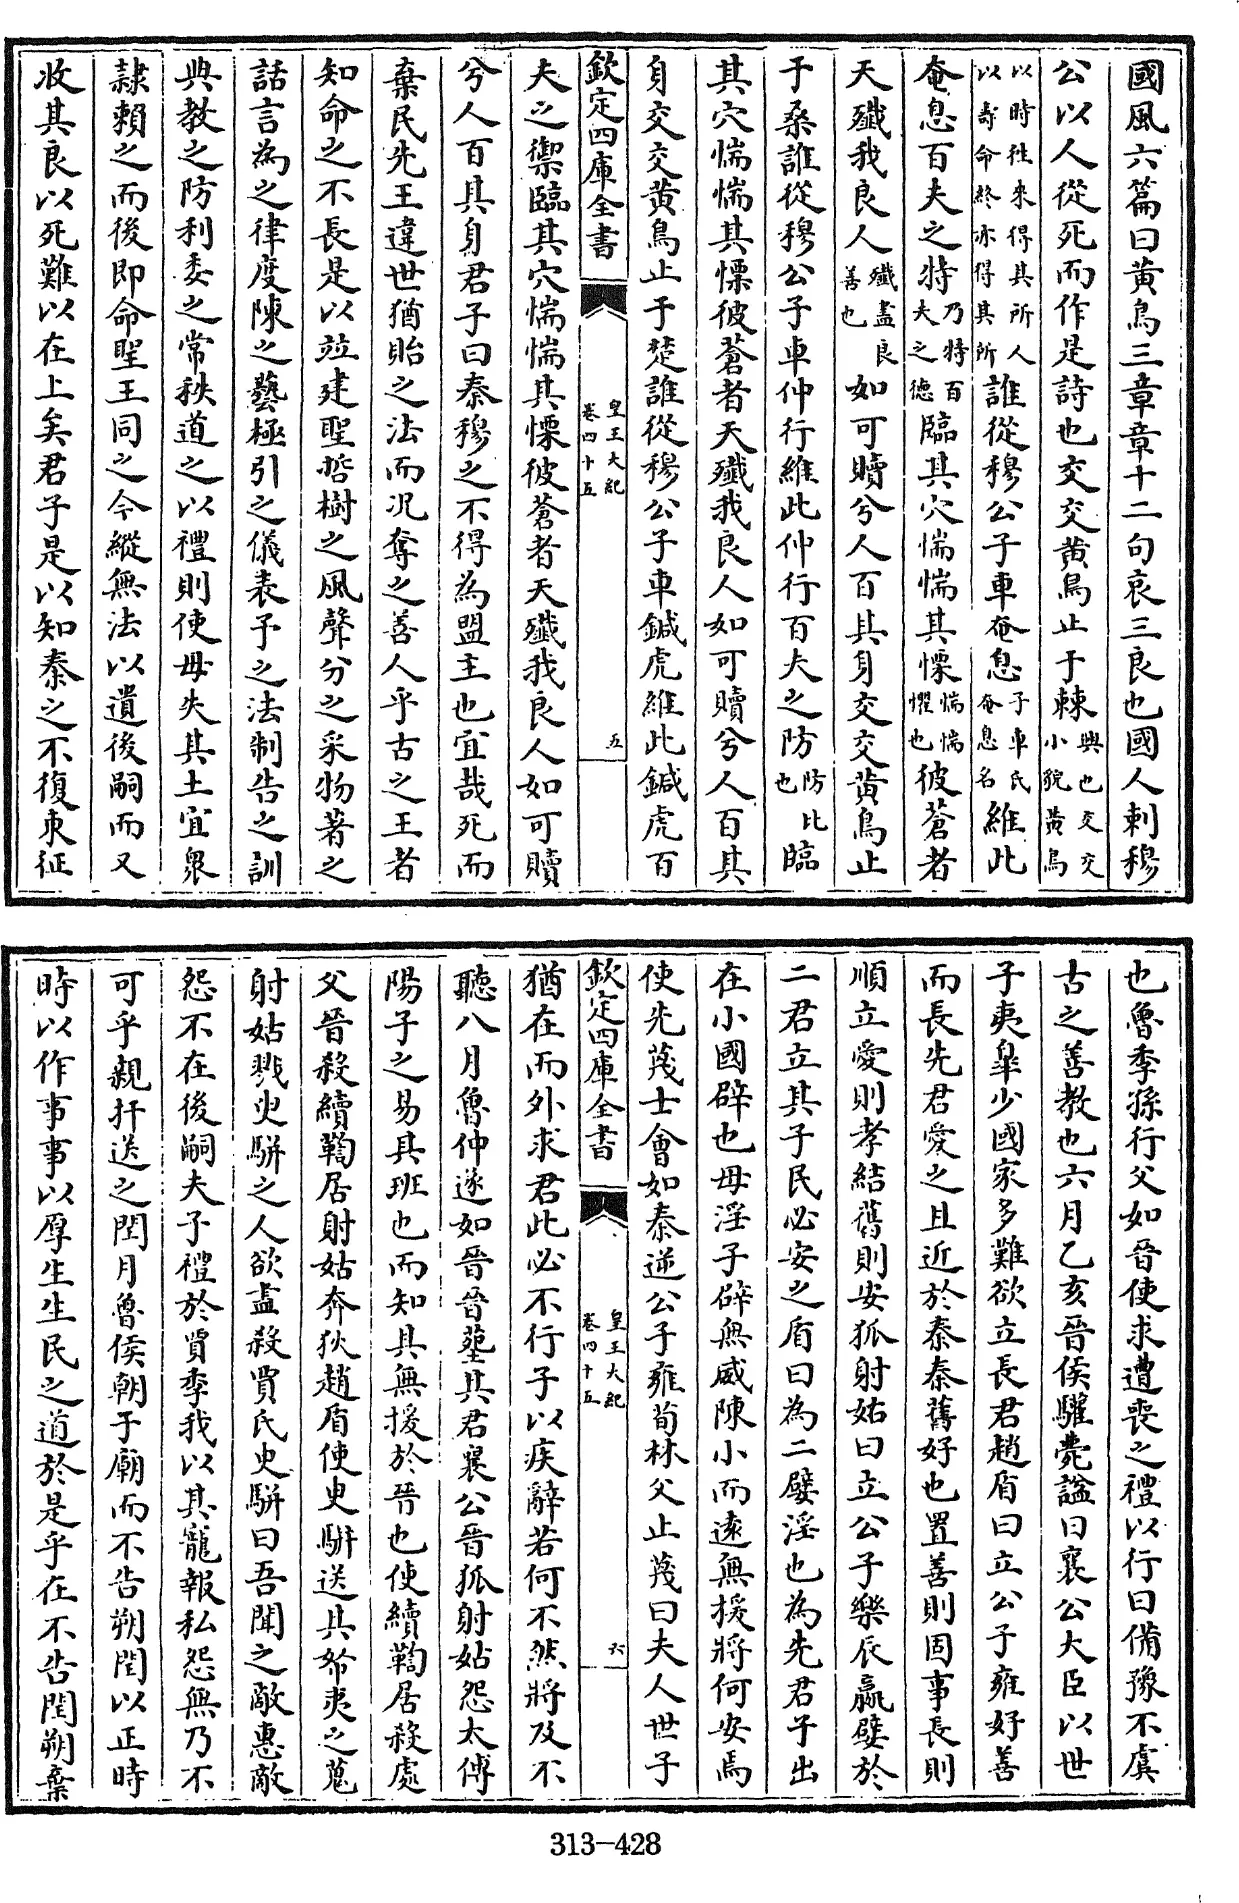 國風六篇曰黃鳥三章章十二句哀三良也國人刺穆
公以人從死而作是詩也交交黃鳥止于棘興也交交黃鳥小貌
以時往來得其所人以壽命終亦得其所誰從穆公子車奄息子車氏奄息名維此
奄息百夫之特乃特百夫之德臨其穴惴惴其慄惴惴懼也彼蒼者
天殲我良人殲盡良善也如可贖兮人百其身交交黃鳥止
于桑誰從穆公子車仲行維此仲行百夫之防防比也臨
其穴惴惴其慄彼蒼者天殲我良人如可贖兮人百其
身交交黃鳥止于楚誰從穆公子車鍼虎維此鍼虎百
欽定四庫全書 皇王大紀卷四十五 五
夫之禦臨其穴惴惴其慄彼蒼者天殲我良人如可贖
兮人百其身君子曰秦穆之不得為盟主也宜哉死而
棄民先王違世猶貽之法而况奪之善人乎古之王者
知命之不長是以竝建聖哲樹之風聲分之采物著之
話言為之律度陳之藝極引之儀表予之法制告之訓
典教之防利委之常秩道之以禮則使毋失其土宜衆
隷賴之而後即命聖王同之今縱無法以遺後嗣而又
收其良以死難以在上矣君子是以知秦之不復東征
也魯季孫行父如晉使求遭喪之禮以行曰備豫不虞
古之善教也六月乙亥晉侯驩薨諡曰襄公大臣以世
子夷臯少國家多難欲立長君趙盾曰立公子雍好善
而長先君愛之且近於秦秦舊好也置善則固事長則
順立愛則孝結舊則安狐射姑曰立公子樂辰嬴嬖於
二君立其子民必安之盾曰為二嬖淫也為先君子出
在小國辟也母淫子辟無威陳小而遠無援將何安焉
使先蔑士會如秦逆公子雍荀林父止蔑曰夫人世子
欽定四庫全書 皇王大紀卷四十五 六
猶在而外求君此必不行子以疾辭若何不然將及不
聽八月魯仲遂如晉晉塟其君襄公晉狐射姑怨太傅
陽子之易其班也而知其無援於晉也使續鞫居殺處
父晉殺續鞫居射姑奔狄趙盾使史駢送其帑夷之蒐
射姑戮史駢之人欲盡殺賈氏史駢曰吾聞之敵惠敵
怨不在後嗣夫子禮於賈季我以其寵報私怨無乃不
可乎親扞送之閏月魯侯朝于廟而不告朔閏以正時
時以作事事以厚生生民之道於是乎在不告閏朔棄
313-428